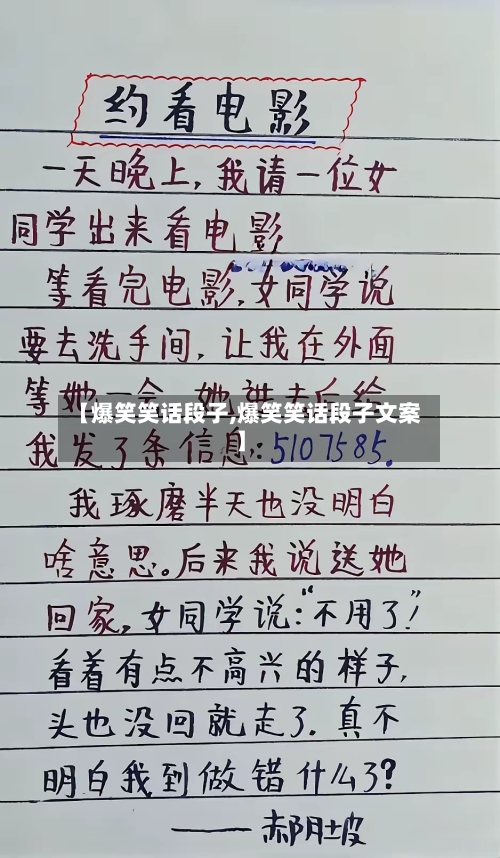 约看电影
一天晚上，我请一位女
同学出来看电影
等看完电影，女同学说
要去洗手间，让我在外面
等她一会，她进去后给
【爆笑笑话段子,爆笑笑话段子文案
】
我发了条信息：5107585.
我琢磨半天也没明白
啥意思。后来我说送她
回家，女同学说：“不用了！”
看着有点不高兴的样子，
头也没回就走了．真不
明白我到做错什么了？
——郝阴坡